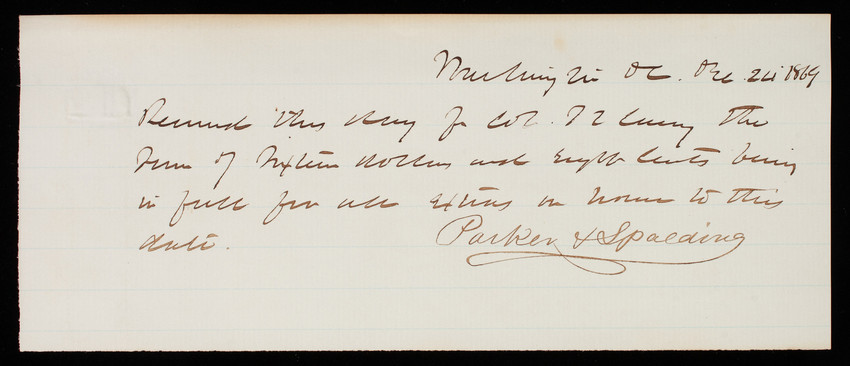 Washington DC. Dec 24 1869
Received this day fr Col. T L Casey the
sum of Sixteen dollars and Eight Cents being
in full for all extras on house to this
date. Parker & Spalding